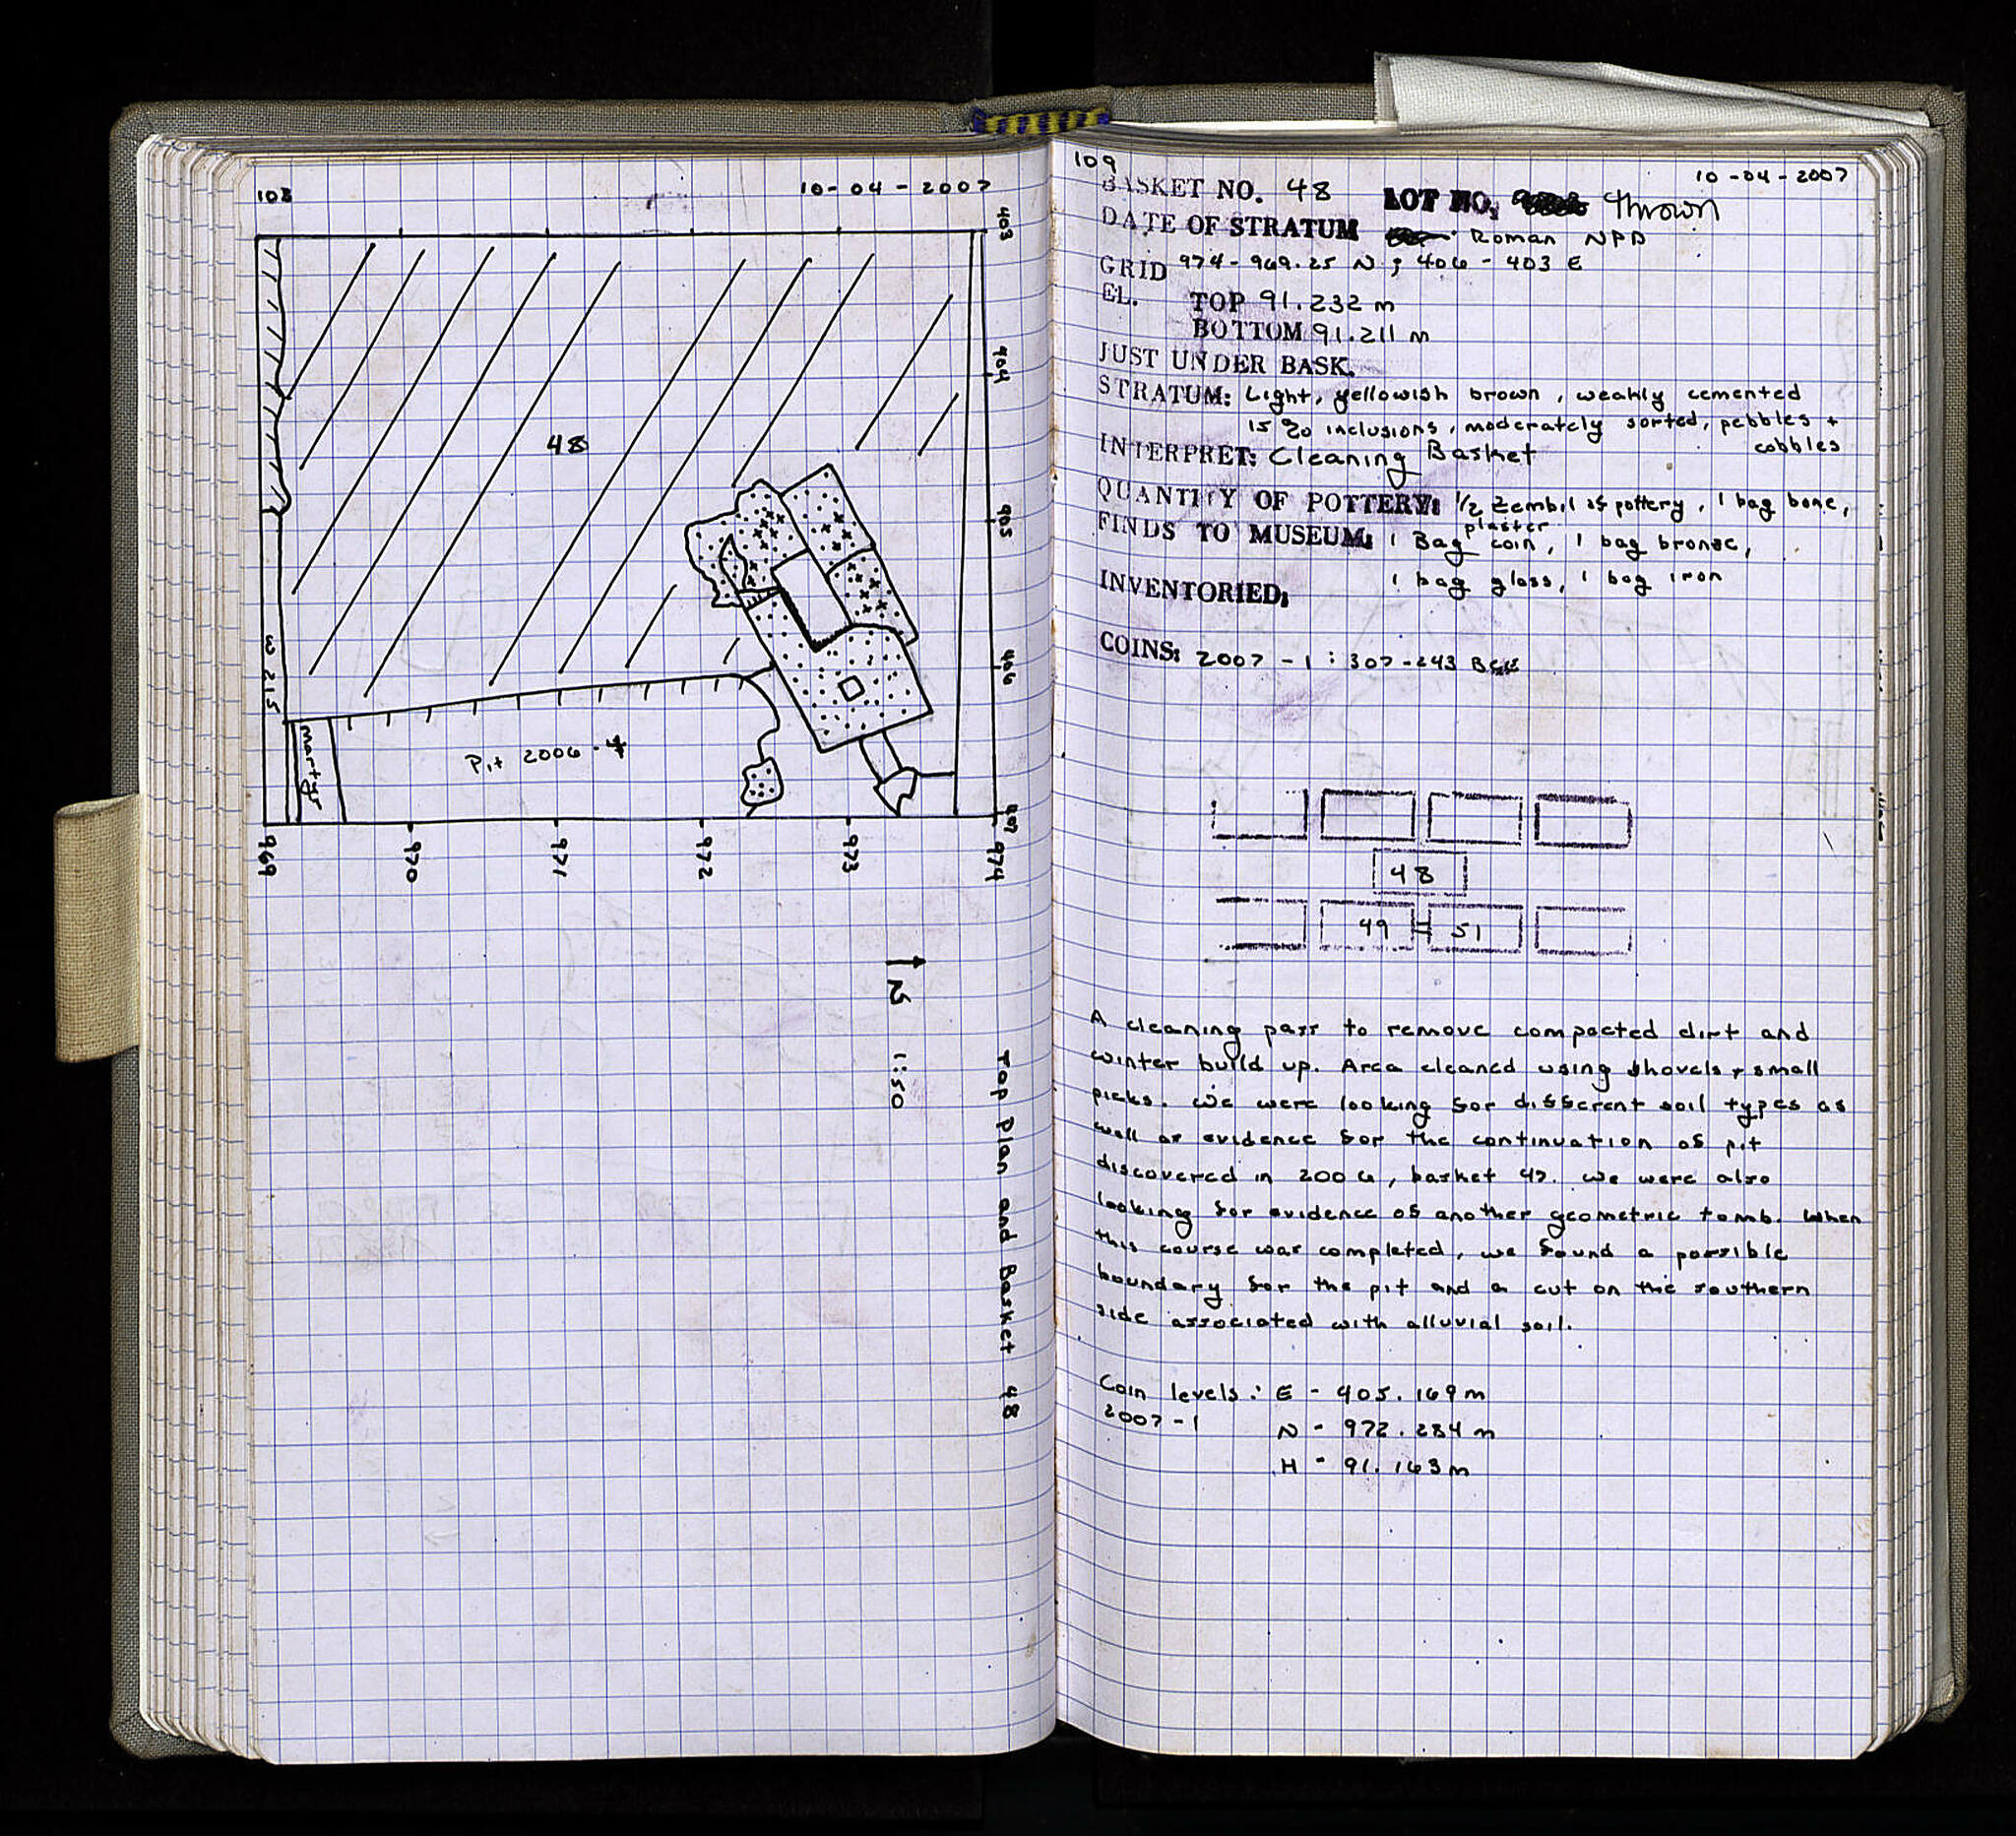 108
10-04-2007
403
404
48
405
W 215
406
martyr
Pit 2006-4
407
969
970
971
972
973
974
N
1:50
Top Plan and Basket 48
109
10-04-2007
BASKET NO. 48 LOT NO. thrown
DATE OF STRATUM Roman NPD
GRID 974-969.25 N ; 406-403 E
EL. TOP 91.232 m
BOTTOM 91.211 m
JUST UNDER BASK.
STRATUM: Light, yellowish brown, weakly cemented
15% inclusions, moderately sorted, pebbles +
cobbles
INTERPRET: Cleaning Basket
QUANTITY OF POTTERY: 1/2 zembil of pottery, 1 bag bone,
plaster
FINDS TO MUSEUM: 1 Bag coin, 1 bag bronze,
1 bag glass, 1 bag iron
INVENTORIED:
COINS: 2007-1: 307-243 BCE
48
49 = 51
A cleaning pass to remove compacted dirt and
winter build up. Area cleaned using shovels + small
picks. We were looking for different soil types as
well as evidence for the continuation of pit
discovered in 2006, basket 47. We were also
looking for evidence of another geometric tomb. When
this course was completed, we found a possible
boundary for the pit and a cut on the southern
side associated with alluvial soil.
Coin levels: E - 405.169m
2007-1
N - 972.284m
H - 91.163m